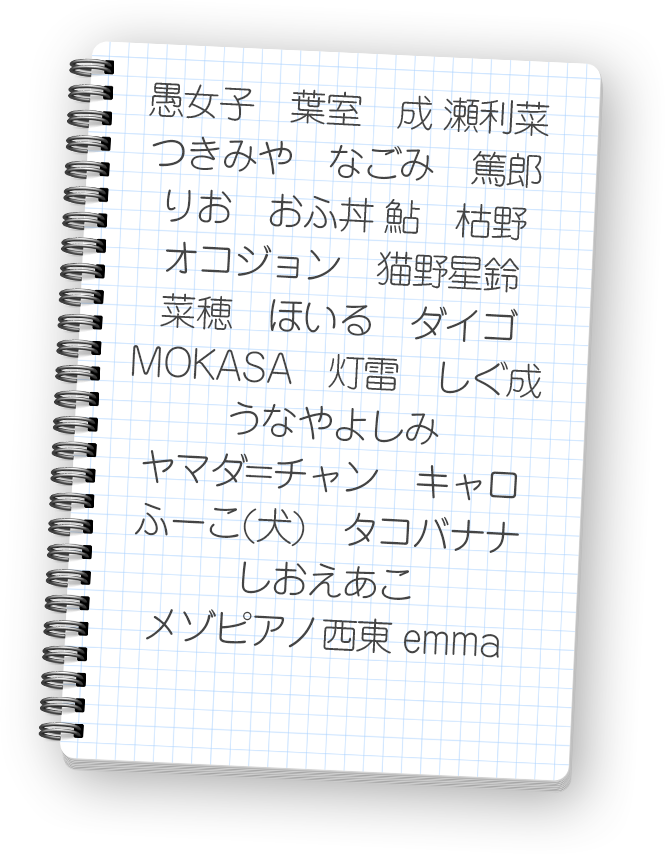 愚女子　葉室　成 瀬利菜
つきみや　なごみ　篤郎
りお　おふ丼 鮎　枯野
オコジョン　猫野星鈴
菜穂　ほいる　ダイゴ
MOKASA　灯雷　しぐ成
うなやよしみ
ヤマダ=チャン　キャロ
ふーこ(犬)　タコバナナ
しおえあこ
メゾピアノ西東 emma